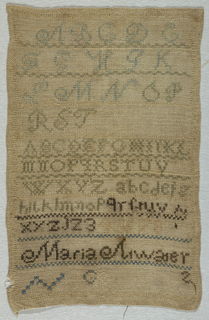 A B C D E
F G H I K
L M N O P
R S T
A B C D E F G H I K L
M N O P Q R S T U V
W X Y Z a b c d e f g
h i k l m n o p q r s t u v w
x y z 1 2 3
Maria